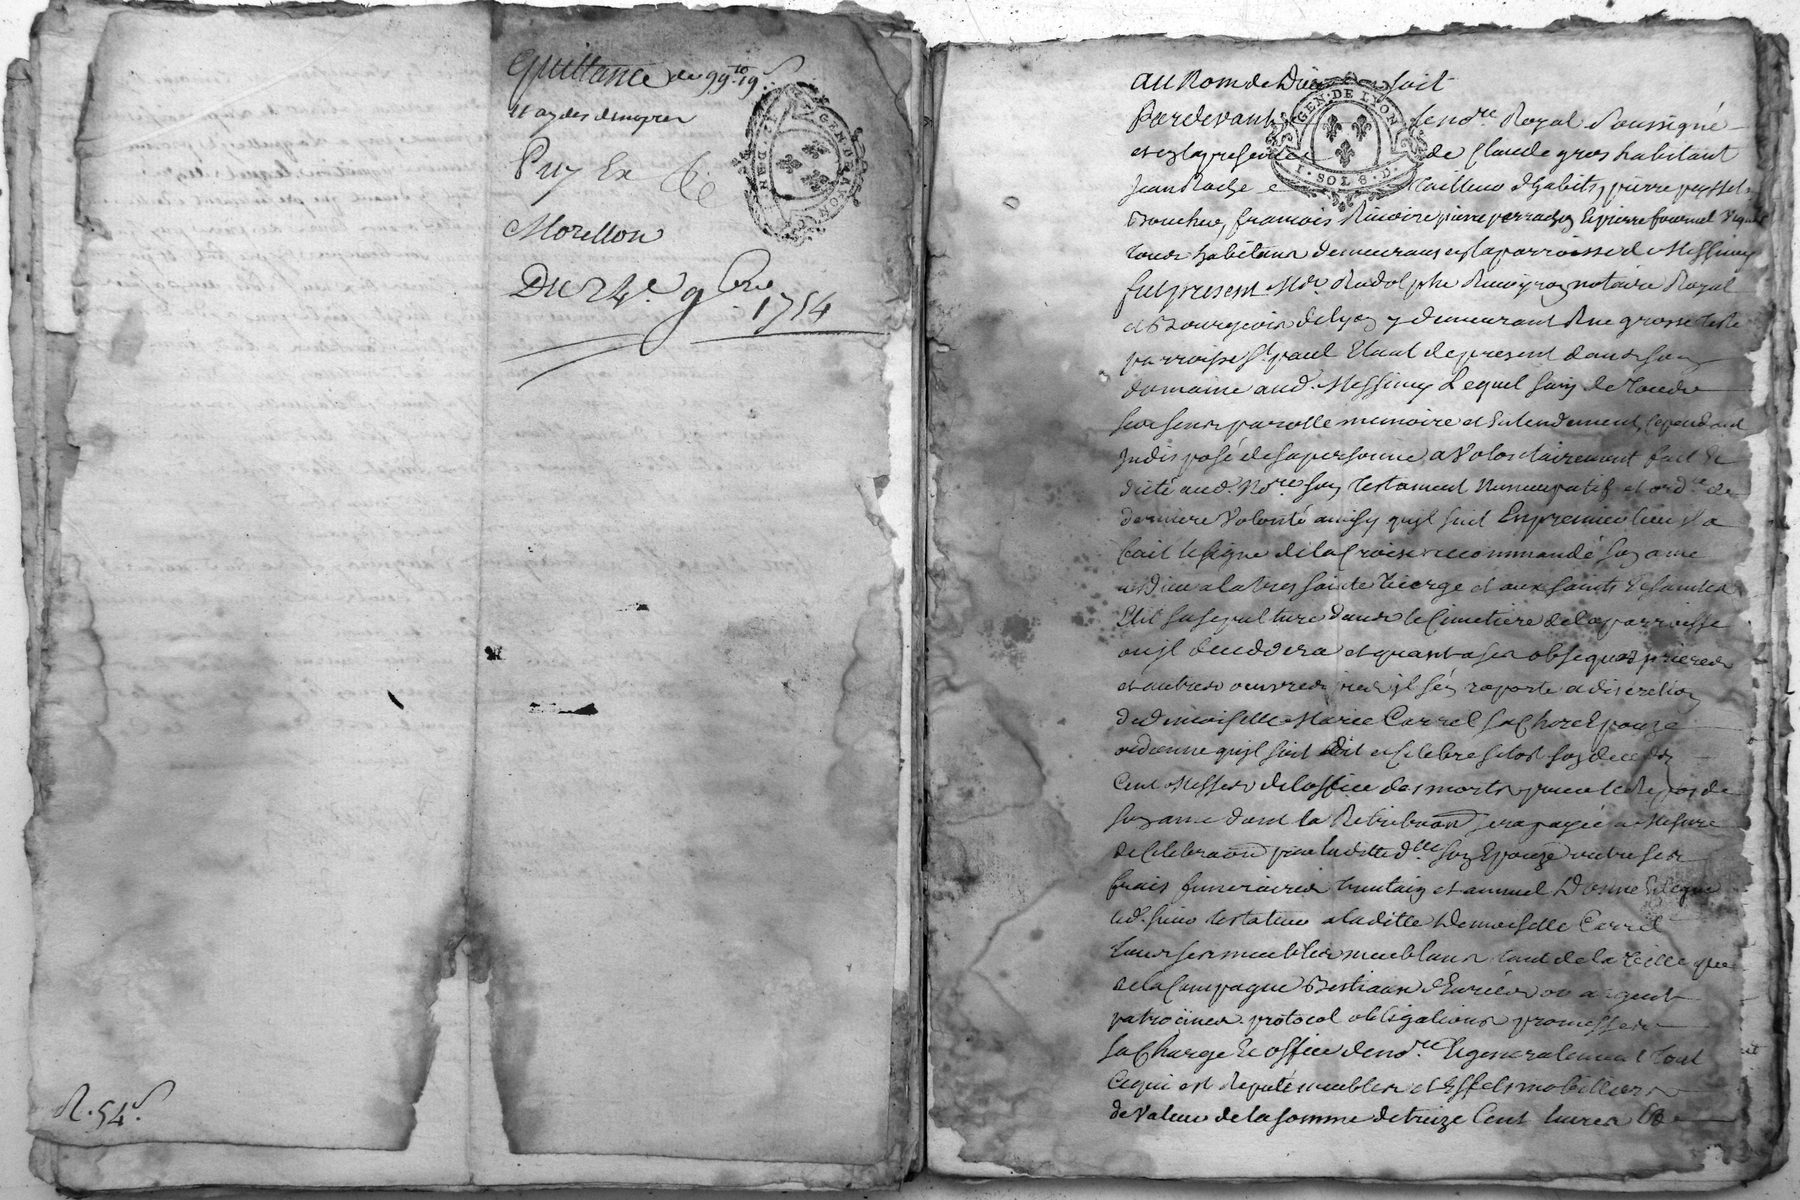 Quittance de 99lt 19s
Puy Ex
Morellon
Du 24e 9bre
1754
R. 54s.
GEN. DE LYON
1. SOL 8. D.
au Nom de Dieu soit
Pardevant le no.re Royal soussigné
et en la presence de Claude gros habitant
Jean tailleur d'habits, pierre peyssel
Boucher, françois pierre et pierre fournel
tous habitans demeurans en la parroisse de Messimy
fut present Mr. Rodolphe notaire Royal
et Bourgeois de Lyon y demeurant Rue grosse teste
parroisse St. paul Etant de present dans son
domaine aud. Messimy Lequel sain de toutes
ses sens parolle memoire et Entendement, cependant
Indisposé de sa personne, a Volontairement fait et
dicté aud. No.re son testament Nuncupatif et ord.ce de
derniere Volonté ainsy qu'jl suit En premier lieu jl a
fait le signe de la Croix recommandé son ame
a Dieu a la tres sainte Vierge et aux saints et saintes
Elit sa sepulture dans le Cimetière de la parroisse
ou jl deceddera et quant a ses obseques prieres
et autres oeuvres pies jl s'en raporte a discretion
de demoiselle Marie Carrel sa Chere Epouze
ordonne qu'jl soit dit et Celebré sitot son decedz
Cent Messes de l'office des morts pour le Repos de
son ame dont la Retribuaon sera payée a Mesure
de Celebraon par laditte dlle son Epouze outre ses
frais funeraires trentain et annuel Donne et legue
led. sieur testateur a laditte Demoiselle Carrel
tous ses meubles meublans tant de la Ville que
de la Campagne Bestiaux Denrées or argent
patrocines protocol obligations promesses
sa Charge et office de no.re et generalement tout
ce qui est Reputé meubles et Effets mobilliers
de Valeur de la somme de treize Cent livres